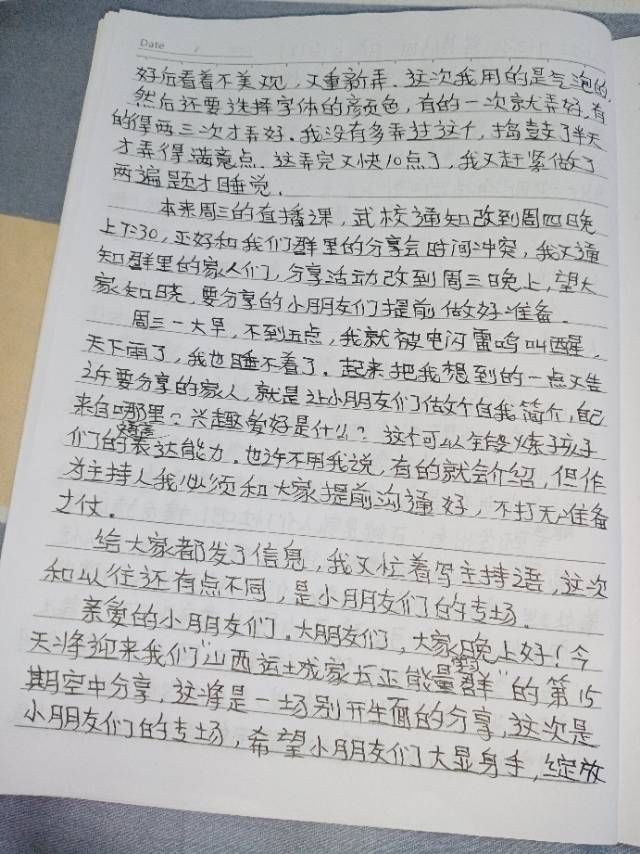 Date
好后看着不美观，又重新弄。这次我用的是气泡的，
然后还要选择字体的颜色，有的一次就弄好，有
的得两三次才弄好。我没有多弄过这个，捣鼓了半天
才弄得满意点。这弄完又快10点了，我又赶紧做了
两遍题才睡觉。
本来周三的直播课，武校通知改到周四晚
上7:30，正好和我们群里的分享会时间冲突，我又通
知群里的家人们，分享活动改到周三晚上，望大
家知晓，要分享的小朋友们提前做好准备。
周三一大早，不到五点，我就被电闪雷鸣叫醒，
天下雨了，我也睡不着了。起来把我想到的一点又告
诉要分享的家人，就是让小朋友们做个自我简介，自己
来自哪里？兴趣爱好是什么？这个可以锻炼孩子
们的语言表达能力。也许不用我说，有的就会介绍，但作
为主持人我必须和大家提前沟通好，不打无准备
之仗。
给大家都发了信息，我又忙着写主持语，这次
和以往还有点不同，是小朋友们的专场。
亲爱的小朋友们，大朋友们，大家晚上好！今
天将迎来我们“山西运城家长正能量学习群”的第15
期空中分享，这将是一场别开生面的分享，这次是
小朋友们的专场，希望小朋友们大显身手，绽放